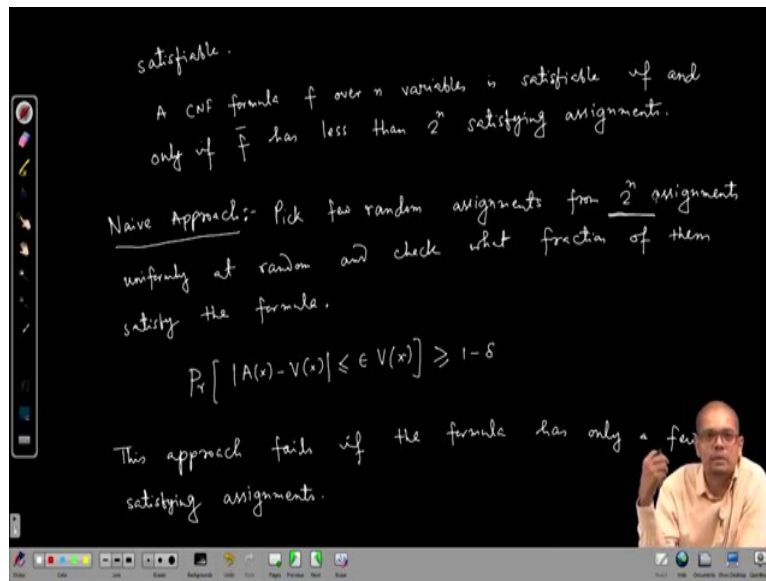 satisfiable.
A CNF formula f over n variables is satisfiable if and
only if f̄ has less than 2ⁿ satisfying assignments.
Naive Approach:- Pick few random assignments from 2ⁿ assignments
uniformly at random and check what fraction of them
satisfy the formula.
Pr[ |A(x)-V(x)| ≤ ϵ V(x)] ⩾ 1-δ
This approach fails if the formula has only a few
satisfying assignments.